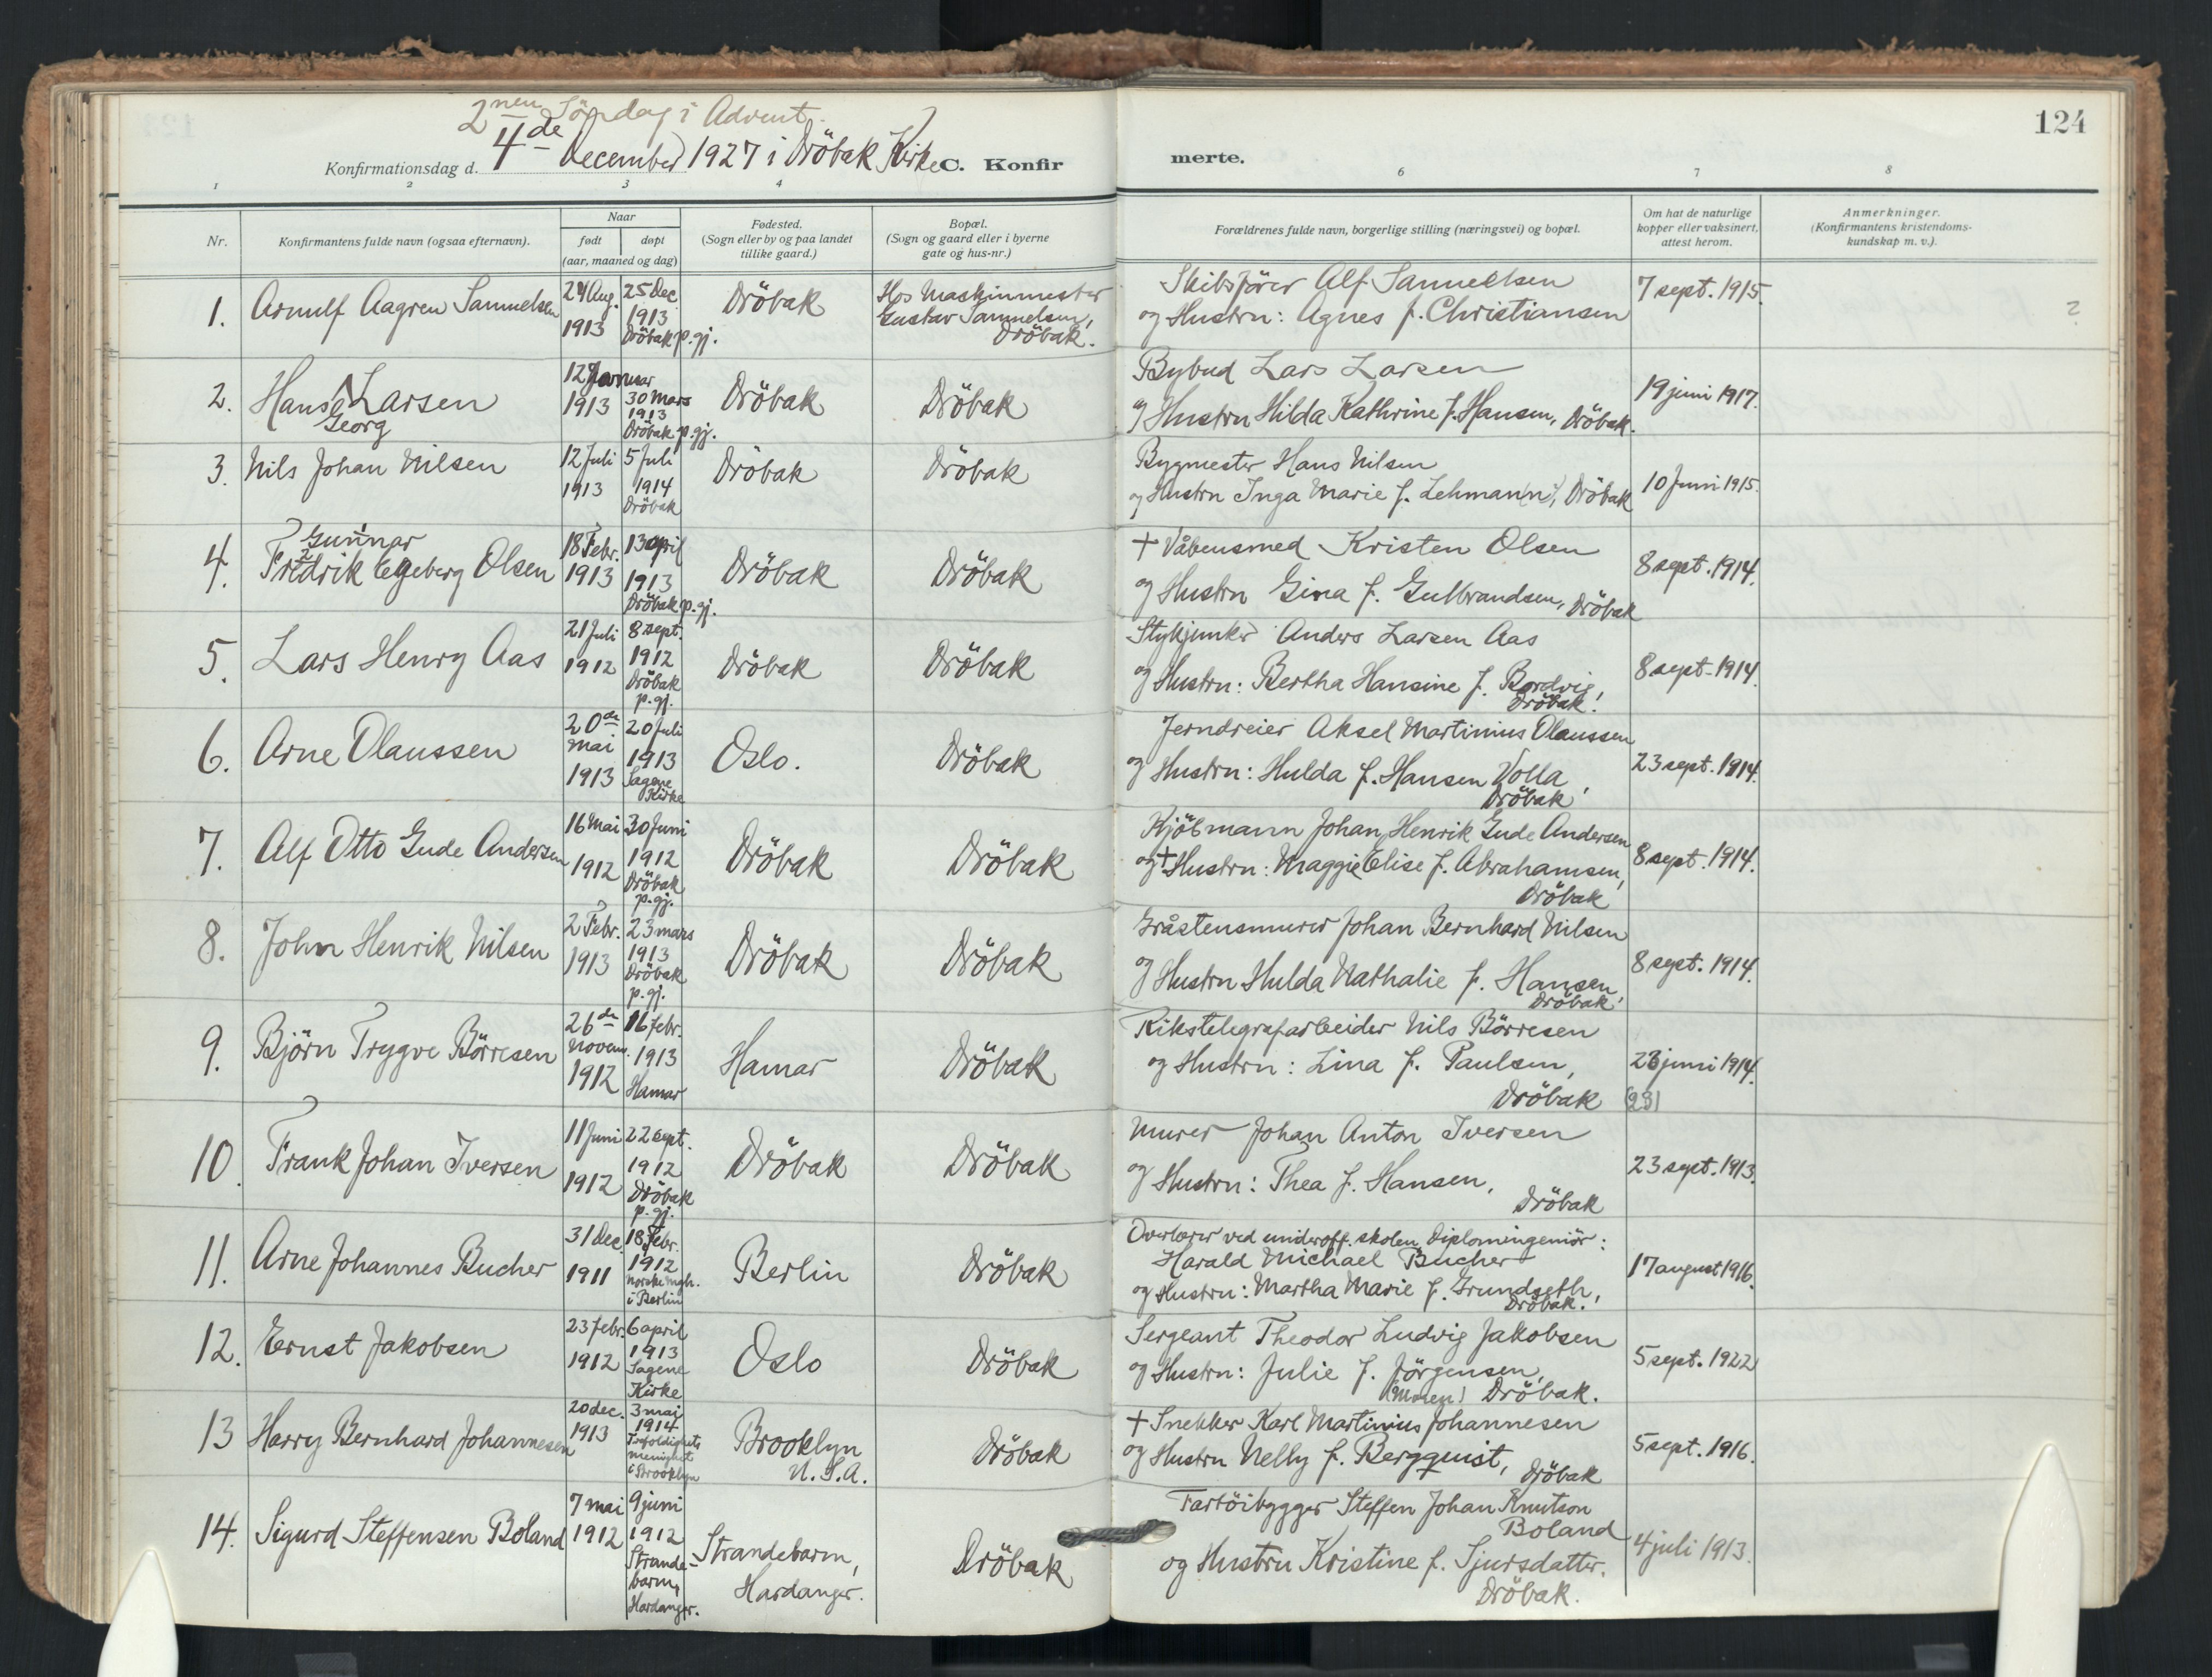 124
2nen Söndag i Advent.
Konfirmationsdag d. 4de December 1927 i Dröbak Kirke C. Konfir merte.
1 2 3 4 6 7 8
Nr. Konfirmantens fulde navn (ogsaa efternavn). Naar født døpt (aar, maaned og dag) Fødested. (Sogn eller by og paa landet tillike gaard.) Bopæl. (Sogn og gaard eller i byerne gate og hus-nr.) Forældrenes fulde navn, borgerlige stilling (næringsvei) og bopæl. Om hat de naturlige kopper eller vaksinert, attest herom. Anmerkninger. (Konfirmantens kristendoms-kundskap m. v.).
1. Arnulf Aagren Samuelsen 24 Aug. 1913 25 Dec 1913 Dröbak p. gj. Dröbak Hos Maskinmester Gustav Samuelsen, Dröbak.
Skibsförer Alf Samuelsen
og Hustru: Agnes f. Christiansen 7 sept. 1915. ?
2. Hans Georg Larsen 12 Januar 1913 30 Mars 1913 Dröbak p. gj. Dröbak Dröbak
Bybud Lars Larsen
og Hustru Hilda Kathrine f. Hansen, Dröbak. 19 juni 1917.
3. Nils Johan Nilsen 12 Juli 1913 5 Juli 1914 Dröbak Dröbak Dröbak
Bygmester Hans Nilsen
og Hustru Inga Marie f. Lehman(n), Dröbak 10 Juni 1915.
4. Fredrik Gunnar Egeberg Olsen 18 Febr. 1913 13 april 1913 Dröbak p. gj. Dröbak Dröbak
† Våbensmed Kristen Olsen
og Hustru Gina f. Gulbrandsen, Dröbak 8 sept. 1914.
5. Lars Henry Aas 21 Juli 1912 8 sept. 1912 Dröbak p. gj. Dröbak Dröbak
Stykjunker Anders Larsen Aas
og Hustru: Bertha Hansine f. Bordvig, Dröbak. 8 sept. 1914.
6. Arne Olaussen 20de mai 1913 20 Juli 1913 Sagene Kirke Oslo. Dröbak
Jerndreier Aksel Martinius Olaussen
og Hustru: Hulda f. Hansen Volla, Dröbak 23 sept. 1914.
7. Alf Otto Gude Andersen 16 Mai 1912 30 Juni 1912 Dröbak p. gj. Dröbak Dröbak
Kjöbmann Johan Henrik Gude Andersen
og † Hustru: Maggie Elise f. Abrahamsen, Dröbak 8 sept. 1914.
8. John Henrik Nilsen 2 Febr. 1913 23 mars 1913 Dröbak p. gj. Dröbak Dröbak
Gråstensmurer Johan Bernhard Nilsen
og Hustru Hulda Nathalie f. Hansen, Dröbak 8 sept. 1914.
9. Björn Trygve Börresen 26de Novem. 1912 16 febr. 1913 Hamar Hamar Dröbak
Rikstelegrafarbeider Nils Börresen
og Hustru: Lina f. Paulsen,
Dröbak 23 juni 1914. (23)
10. Frank Johan Iversen 11 Juni 1912 22 sept. 1912 Dröbak p. gj. Dröbak Dröbak
Murer Johan Anton Iversen
og Hustru: Thea f. Hansen,
Dröbak 23 sept. 1913.
11. Arne Johannes Bucher 31 Dec. 1911 18 Febr. 1912 Norske mgh. i Berlin Berlin Dröbak
Overlærer ved underoff. skolen, Diplomingeniör:
Harald Michael Bucher
og Hustru: Martha Marie f. Grundseth, Dröbak. 17 august 1916.
12. Ernst Jakobsen 23 febr. 1912 6 april 1913 Sagene Kirke Oslo Dröbak
Sergeant Theodor Ludvig Jakobsen
og Hustru: Julie f. Jörgensen,
Dröbak. 5 sept. 1922
13 Harry Bernhard Johannesen 20 dec. 1913 3 mai 1914 Trefoldighets menighet i Brooklyn Brooklyn U. S. A. Dröbak
† Snekker Karl Martinius Johannesen
og Hustru Nelly f. Bergquist, Dröbak 5 sept. 1916.
14. Sigurd Steffensen Boland 7 mai 1912 9 juni 1912 Strande-barm, Hardanger. Strandebarm, Hardanger. Dröbak
Fartöibygger Steffen Johan Knutson
Boland
og Hustru Kristine f. Sjursdatter.
Dröbak. 4 juli 1913.